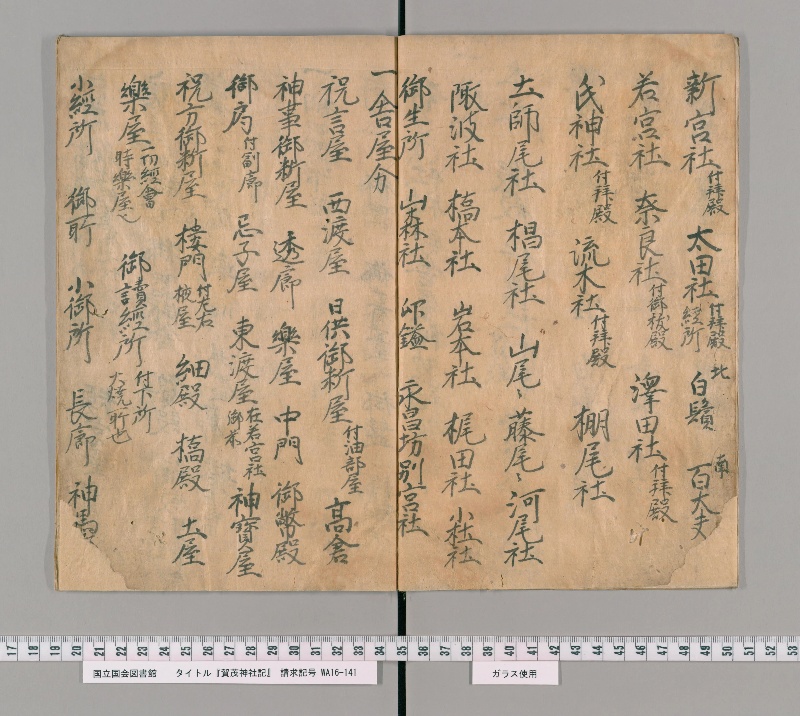 新宮社付拝殿 太田社付拝殿経所 北白鬚 南百大夫
若宮社 奈良社付御拔殿 澤田社付拝殿
氏神社付拝殿 流木社付拝殿 棚尾社
土師尾社 椙尾社 山尾ゝ 藤尾ゝ 河尾社
陬波社 槁本社 岩本社 梶田社 小社社
御生所 山森社 印鎰 永昌坊別宮社
一舎屋分
祝言屋 西渡屋 日供御新屋付油部屋 高倉
神事御新屋 透廊 樂屋 中門 御幣殿
御房付副廊 忌子屋 東渡屋在若宮社御末 神寶屋
祝方御新屋 樓門付左右 細殿 槁殿 土屋
樂屋一切經會時樂屋也 御讀經所付下所大焼所也
小經所 御所 小御所 長廊 神馬
17 18 19 20 21 22 23 24 25 26 27 28 29 30 31 32 33 34 35 36 37 38 39 40 41 42 43 44 45 46 47 48 49 50 51 52 53
国立国会図書館 タイトル『賀茂神社記』 請求記号 WA16-141
ガラス使用